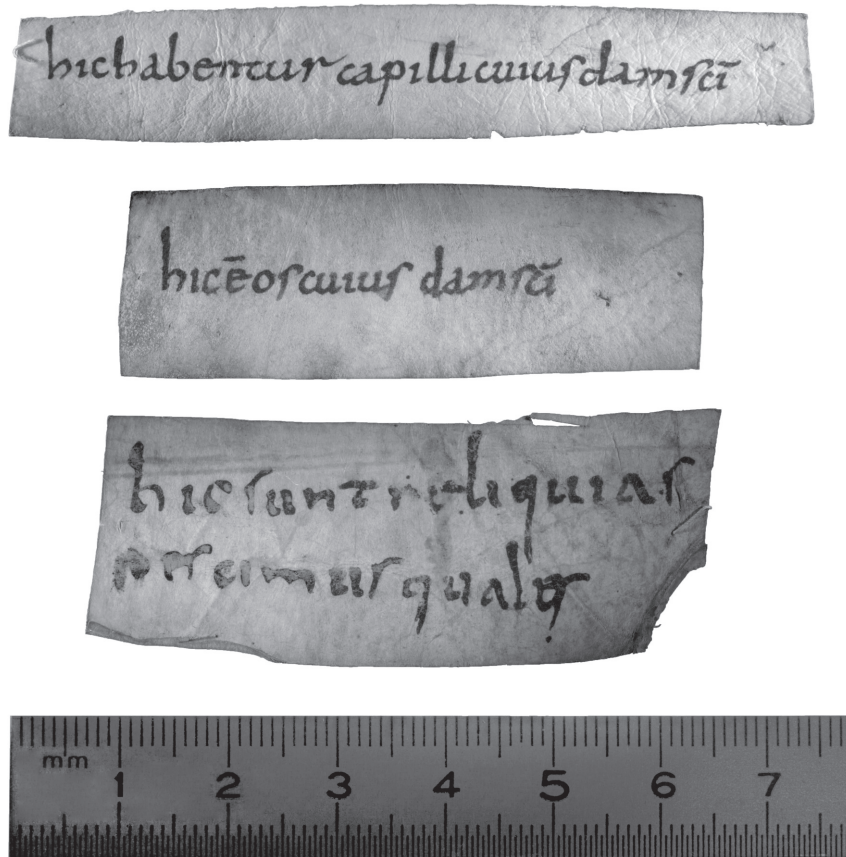 hic habentur capilli cuius dam scī
hic ē os cuius dam scī
hic sunt reliquias
nescimus quales
mm 1 2 3 4 5 6 7